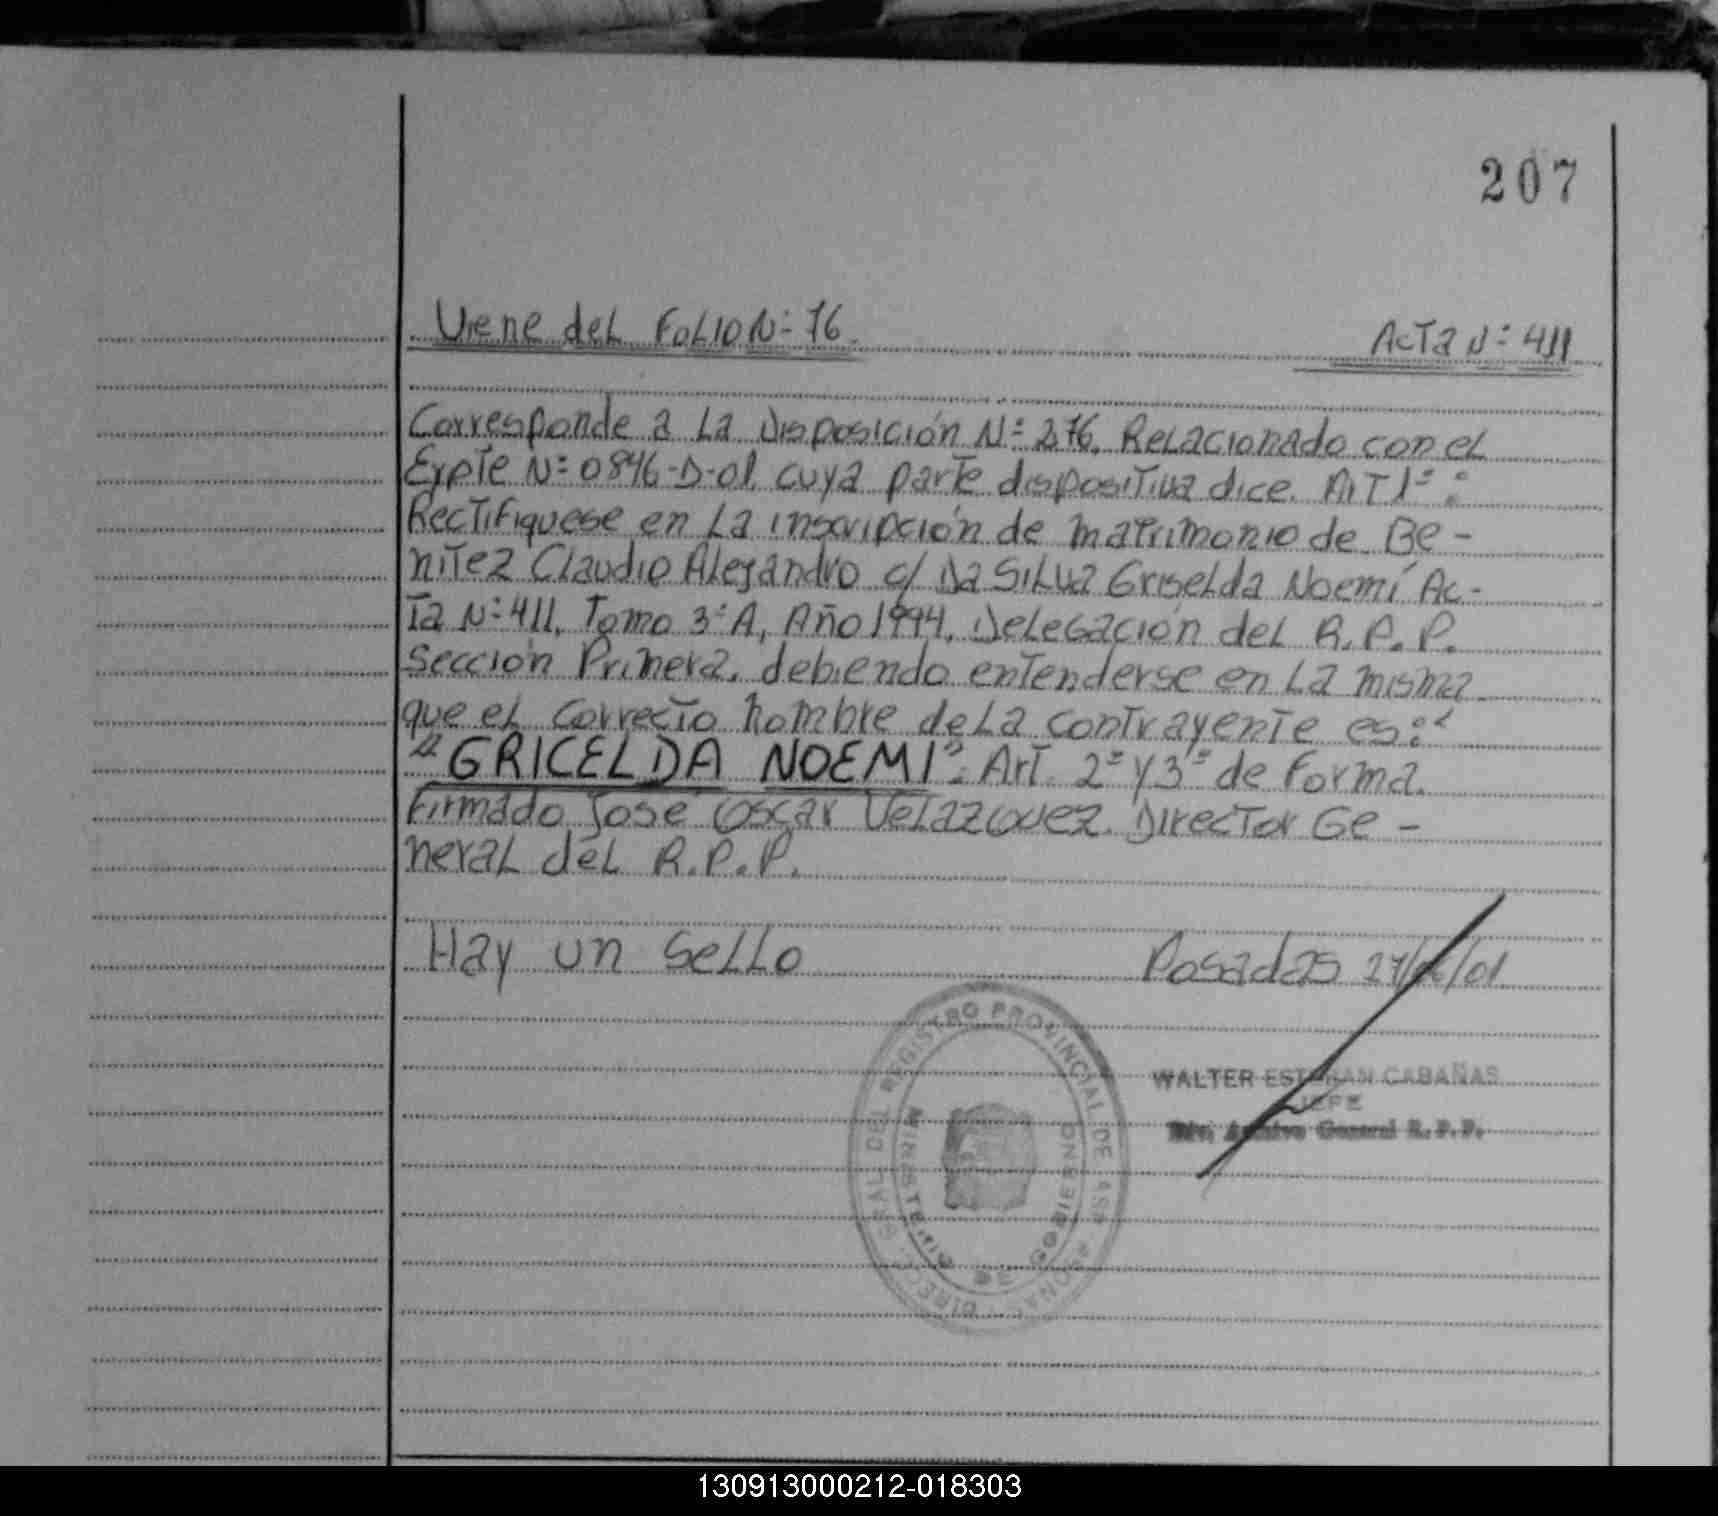 207
Viene del Folio N= 76. Acta N= 411
Corresponde a La Disposición N= 276. Relacionado con el
Expte N= 0846-D-01. cuya parte dispositiva dice. Art 1= :
Rectifiquese en La inscripción de matrimonio de Be-
nitez Claudio Alejandro c/ Da Silva Griselda Noemí Ac-
ta N= 411, Tomo 3= A, Año 1994, Delegación del R.P.P.
Sección Primera, debiendo entenderse en La misma
que el correcto nombre de La contrayente es:"
"GRICELDA NOEMI". Art. 2= y 3= de Forma.
Firmado José Oscar Velazquez. Director Ge-
neral del R.P.P.
Hay un Sello Posadas 27/ /01
WALTER ESTEBAN CABAÑAS
JEFE
Div. Archivo General R.P.P.
DIRECC. GRAL DEL REGISTRO PROVINCIAL DE LAS PERSONAS
MINISTERIO DE GOBIERNO
130913000212-018303